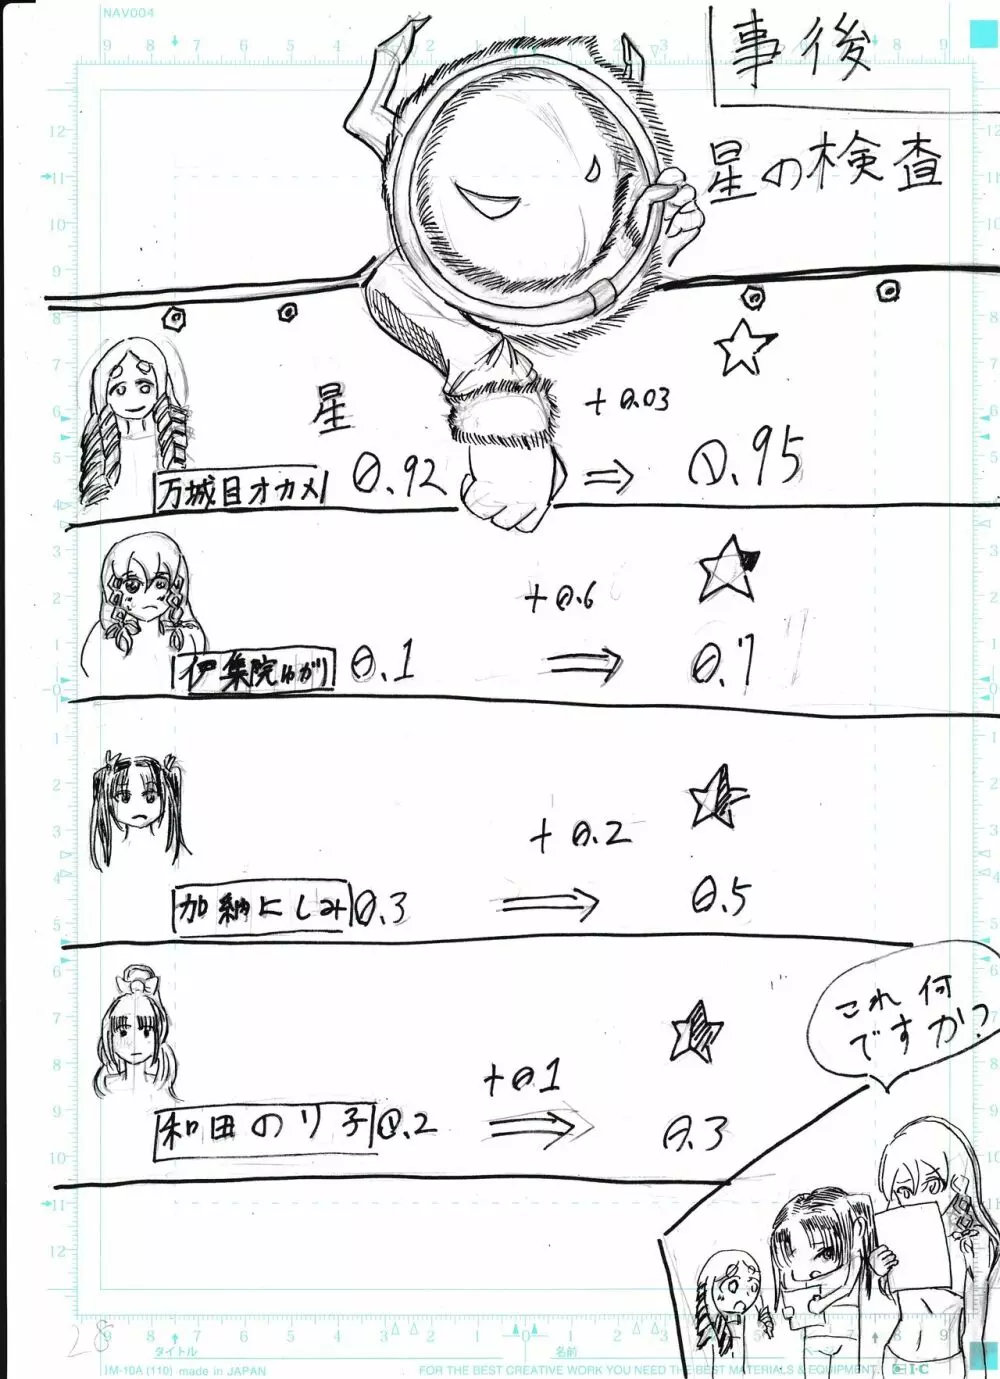 NAV004
事後
星の検査
星
+0.03
万城目オカメ
0.92
⇒
0.95
+0.6
伊集院ゆかり
0.1
⇒
0.7
+0.2
加納にしみ
0.3
⇒
0.5
+0.1
和田のり子
0.2
⇒
0.3
これ何
ですか?
28
タイトル
名前
ページ
IM-10A (110) made in JAPAN
FOR THE BEST CREATIVE WORK YOU NEED THE BEST MATERIALS & EQUIPMENT.
I·C